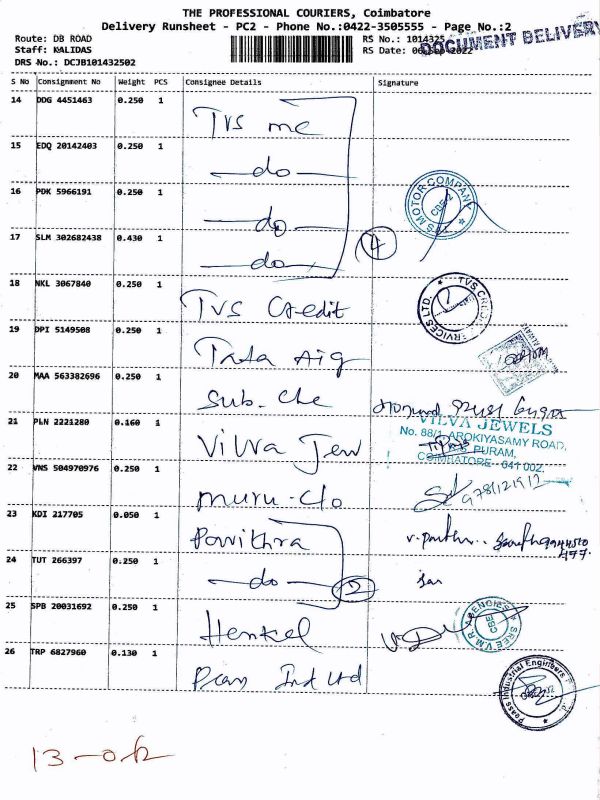 THE PROFESSIONAL COURIERS, Coimbatore
Delivery Runsheet - PC2 - Phone No.:0422-3505555 - Page No.:2
Route: DB ROAD
RS No.: 1014325
Staff: KALIDAS
RS Date: 2022
DOCUMENT DELIVERY
DRS No.: DCJB101432502
S No Consignment No Weight PCS Consignee Details Signature
14 DDG 4451463 0.250 1 TVS mc
15 EDQ 20142403 0.250 1 —do—
16 PDK 5966191 0.250 1 —do—
17 SLM 302682438 0.430 1 —do—
4
TVS MOTOR COMPANY
CBE-2
18 NKL 3067840 0.250 1 TVS Credit
TVS CREDIT SERVICES LTD.
19 DPI 5149508 0.250 1 Tata Aig
20 MAA 563382696 0.250 1 Sub. Che
21 PLN 2221280 0.160 1 Vilva Jew
VILVA JEWELS
No. 88/1, AROKIYASAMY ROAD,
R.S. PURAM,
COIMBATORE - 641 002.
22 VNS 504970976 0.250 1 muru-c/o
9781121912
23 KDI 217705 0.050 1 Pavithra
24 TUT 266397 0.250 1 —do—
2
25 SPB 20031692 0.250 1 Henkel
SREE V.M.R. AGENCIES
CBE
26 TRP 6827960 0.130 1 Ind Ltd
Industrial Engineers
13-